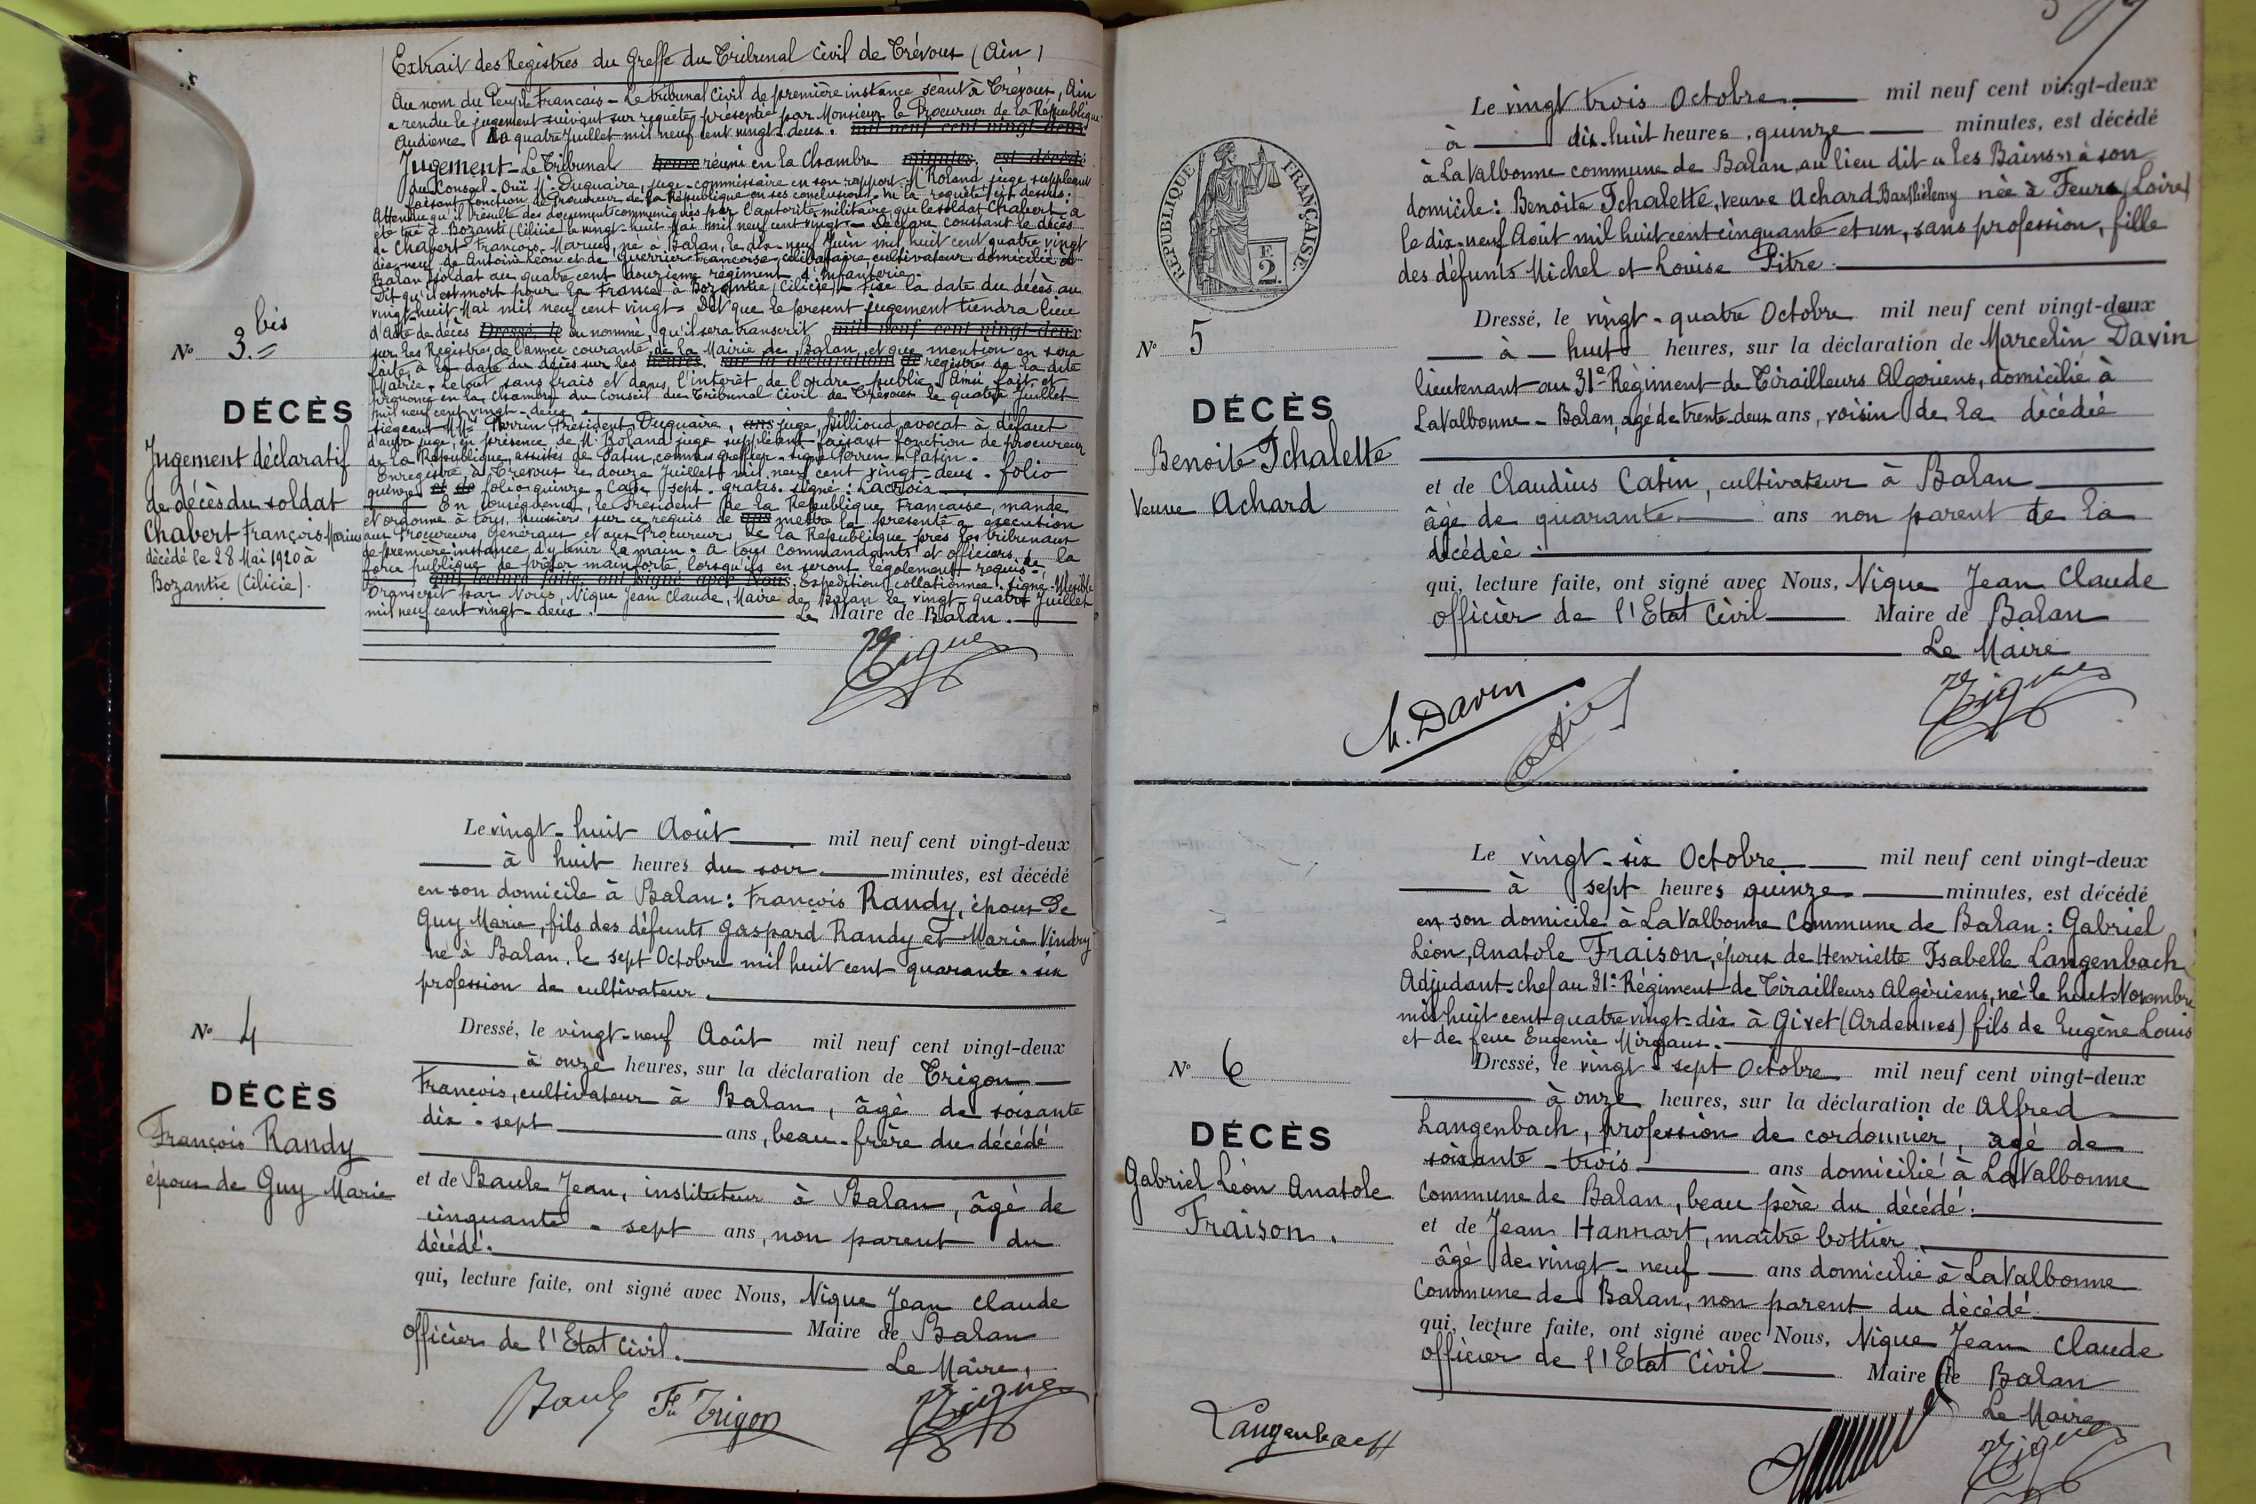 Extrait des Registres du Greffe du Tribunal Civil de Trévoux (Ain)
Au nom du Peuple Français - Le tribunal Civil de première instance séant à Trévoux, Ain
a rendu le jugement suivant sur requête présentée par Monsieur le Procureur de la République
Audience du quatre Juillet mil neuf cent vingt-deux. mil neuf cent vingt-deux
Jugement - Le Tribunal heure réuni en la Chambre minutes, est décédé
du Conseil - Ouï Mr Duquaire, juge-commissaire en son rapport - Mr Roland juge suppléant
faisant fonction de Procureur de la République en ses conclusions. Vu la requête ci-dessus:
Attendu qu'il résulte des documents communiqués par l'autorité militaire que le soldat Chabert a
été tué à Bozanti (Cilicie) le vingt-huit Mai mil neuf cent vingt - Déclare constant le décès
de Chabert François-Marius, né à Balan, le dix-neuf Juin mil huit cent quatre vingt
dix-neuf, de Antoine Léon et de Guerrier Françoise, célibataire cultivateur domicilié à
Balan, soldat au quatre cent douzième régiment d'Infanterie.
Dit qu'il est mort pour la France à Bozantie (Cilicie) - Fixe la date du décès au
vingt-huit Mai mil neuf cent vingt - Dit que le présent jugement tiendra lieu
d'acte de décès Dressé, le du nommé, qu'il sera transcrit mil neuf cent vingt-deux
sur les Registres de l'année courante, de la Mairie de Balan, et que mention en sera
faite, à la date du décès sur les heures, sur la déclaration de registres de la dite
Mairie. Le tout sans frais et dans l'intérêt de l'ordre public. Ainsi fait et
prononcé en la Chambre du Conseil du Tribunal Civil de Trévoux le quatre Juillet
mil neuf cent vingt-deux.
Siégeant MMrs Perrin Président, Duquaire, ans juge, Billioud avocat à défaut
d'autre juge, en présence de Mr Roland juge suppléant faisant fonction de procureur
de la République, assistés de Patin, commis greffier - signé Perrin - Patin.
Enregistré à Trévoux le douze Juillet mil neuf cent vingt-deux - folio
quinze et de folio quinze - Case sept - gratis - signé: Lacroix
En conséquence, le Président de la République Française, mande
et ordonne à tous huissiers sur ce requis de ans mettre la présente à exécution
aux Procureurs Généraux et aux Procureurs de la République près les tribunaux
de première instance d'y tenir la main. à tous Commandants et officiers de la
force publique de prêter mainforte, lorsqu'ils en seront légalement requis.
qui, lecture faite, ont signé avec Nous, Expédition collationnée. signé:
Transcrit par Nous, Nique Jean Claude, Maire de Balan le vingt-quatre Juillet
mil neuf cent vingt-deux.
Le Maire de Balan.
Nique
No 3. bis
DÉCÈS
Jugement déclaratif
de décès du soldat
Chabert François-Marius
décédé le 28 Mai 1920 à
Bozantie (Cilicie).
Le vingt-huit Août mil neuf cent vingt-deux
à huit heures du soir minutes, est décédé
en son domicile à Balan: François Randy, époux de
Guy Marie, fils des défunts Gaspard Randy et Marie Vindry
né à Balan, le sept Octobre mil huit cent quarante-six
profession de cultivateur.
No 4
DÉCÈS
François Randy
époux de Guy Marie
Dressé, le vingt-neuf Août mil neuf cent vingt-deux
à onze heures, sur la déclaration de Trigon
François, cultivateur à Balan, âgé de soixante
dix-sept ans, beau-frère du décédé
et de Baule Jean, instituteur à Balan, âgé de
cinquante-sept ans, non parent du
décédé.
qui, lecture faite, ont signé avec Nous, Nique Jean Claude
Maire de Balan
officier de l'Etat Civil.
Le Maire,
Baule Fs Trigon Nique
Le vingt trois Octobre mil neuf cent vingt-deux
à dix-huit heures, quinze minutes, est décédé
à La Valbonne commune de Balan, au lieu dit "les Bains" à son
domicile: Benoîte Tchalette, veuve Achard Barthélemy née à Feurs (Loire)
le dix-neuf Août mil huit cent cinquante et un, sans profession, fille
des défunts Michel et Louise Pitre.
RÉPUBLIQUE FRANÇAISE.
E
2.
No 5
DÉCÈS
Benoite Tchalette
Veuve Achard
Dressé, le vingt-quatre Octobre mil neuf cent vingt-deux
à huit heures, sur la déclaration de Marcelin Davin
lieutenant au 31e Régiment de Tirailleurs Algériens, domicilié à
LaValbonne - Balan, âgé de trente-deux ans, voisin de la décédée
et de Claudius Catin, cultivateur à Balan
âgé de quarante ans non parent de la
décédée.
qui, lecture faite, ont signé avec Nous, Nique Jean Claude
officier de l'Etat Civil Maire de Balan
Le Maire
M. Davin Catin Nique
Le vingt-six Octobre mil neuf cent vingt-deux
à sept heures quinze minutes, est décédé
en son domicile à LaValbonne Commune de Balan: Gabriel
Léon, Anatole Fraison, époux de Henriette Isabelle Langenbach
Adjudant-chef au 31e Régiment de Tirailleurs Algériens, né le huit Novembre
mil huit cent quatre vingt-dix à Givet (Ardennes) fils de Eugène Louis
et de feue Eugénie Mirgaux.
No 6
DÉCÈS
Gabriel Léon Anatole
Fraison.
Dressé, le vingt-sept Octobre mil neuf cent vingt-deux
à onze heures, sur la déclaration de Alfred
Langenbach, profession de cordonnier, âgé de
soixante-trois ans domicilié à LaValbonne
Commune de Balan, beau père du décédé.
et de Jean Hannart, maître bottier
âgé de vingt-neuf ans domicilié à LaValbonne
Commune de Balan, non parent du décédé
qui, lecture faite, ont signé avec Nous, Nique Jean Claude
officier de l'Etat Civil Maire de Balan
Le Maire
Langenbach Nique